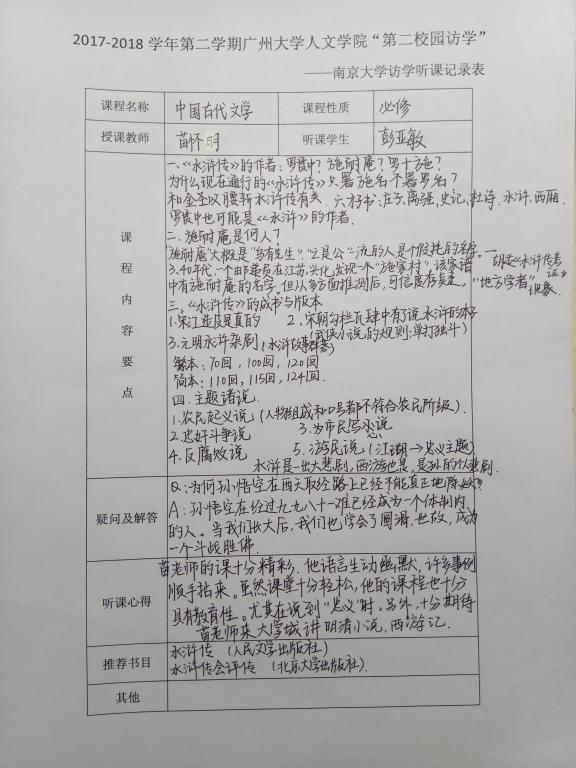 2017-2018 学年第二学期广州大学人文学院“第二校园访学”
——南京大学访学听课记录表
课程名称 中国古代文学 课程性质 必修
授课教师 苗怀明 听课学生 彭亚敏
课程内容要点
一、《水浒传》的作者：罗贯中？施耐庵？罗+施？
为什么现在通行的《水浒传》只署施名不署罗名？
和金圣叹腰斩水浒传有关. 六才子书：庄子、离骚、史记、杜诗、水浒、西厢.
罗贯中也可能是《水浒》的作者.
二、施耐庵是何人？
“施耐庵”大概是“乌有先生”、“亡是公”一流的人是个假托的名字。—胡适《水浒传考证》
3.40年代，一个邮递员在江苏兴化发现一个“施家村”，该家谱
中有施耐庵的名字。但从多方面推测后，可信度存疑。“地方学者”现象.
三、《水浒传》的成书与版本
1.宋江造反是真的 2、宋朝勾栏瓦肆中有了说水浒的本子
(武侠小说的规则：单打独斗)
3.元明水浒杂剧 (水浒故事群落)
繁本：70回，100回，120回
简本：110回，115回，124回.
四、主题诸说.
1.农民起义说 (人物组成和口号都不符合农民阶级).
2.忠奸斗争说 3.为市民写心说
4.反腐败说 5.游民说 (江湖→忠义主题)
水浒是一出大悲剧，西游也是，是孙的个人悲剧.
疑问及解答
Q：为何孙悟空在西天取经路上已经不能真正地降妖？
A：孙悟空在经过九九八十一难已经成为一个体制内
的人。当我们长大后，我们也学会了圆滑、世故，成为
一个斗战胜佛.
听课心得
苗老师的课十分精彩，他语言生动幽默，许多事例
顺手拈来。虽然课堂十分轻松，他的课程也十分
具有教育性。尤其在说到“忠义”时。另外，十分期待
苗老师来大学城讲明清小说、西游记.
推荐书目
水浒传 (人民文学出版社)
水浒传会评传 (北京大学出版社).
其他